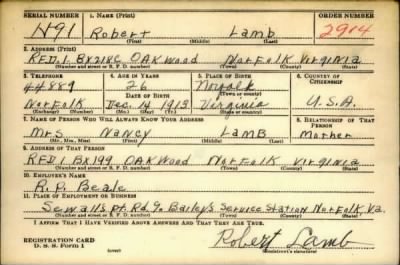 SERIAL NUMBER 1. NAME (Print) ORDER NUMBER
N91 Robert Lamb 2904
(First) (Middle) (Last)
2. ADDRESS (Print)
RFD.1 BX218C OAKWOOD NORFOLK VIRGINIA
(Number and street or R. F. D. number) (Town) (County) (State)
3. TELEPHONE 4. AGE IN YEARS 5. PLACE OF BIRTH 6. COUNTRY OF CITIZENSHIP
44889 26 Norfolk
DATE OF BIRTH (Town or county)
Norfolk Dec. 14 1913 Virginia U.S.A.
(Exchange) (Number) (Mo.) (Day) (Yr.) (State or country)
7. NAME OF PERSON WHO WILL ALWAYS KNOW YOUR ADDRESS 8. RELATIONSHIP OF THAT PERSON
Mrs Nancy LAMB Mother
(Mr., Mrs., Miss) (First) (Middle) (Last)
9. ADDRESS OF THAT PERSON
RFD1 BX199 OAKWOOD NORFOLK VIRGINIA
(Number and street or R. F. D. number) (Town) (County) (State)
10. EMPLOYER'S NAME
R. P. Beale
11. PLACE OF EMPLOYMENT OR BUSINESS
Sewalls Pt. Rd. Baileys Service Station Norfolk Va.
(Number and street or R. F. D. number) (Town) (County) (State)
I AFFIRM THAT I HAVE VERIFIED ABOVE ANSWERS AND THAT THEY ARE TRUE.
REGISTRATION CARD
D. S. S. Form 1 (over) Robert Lamb
(Registrant's signature)